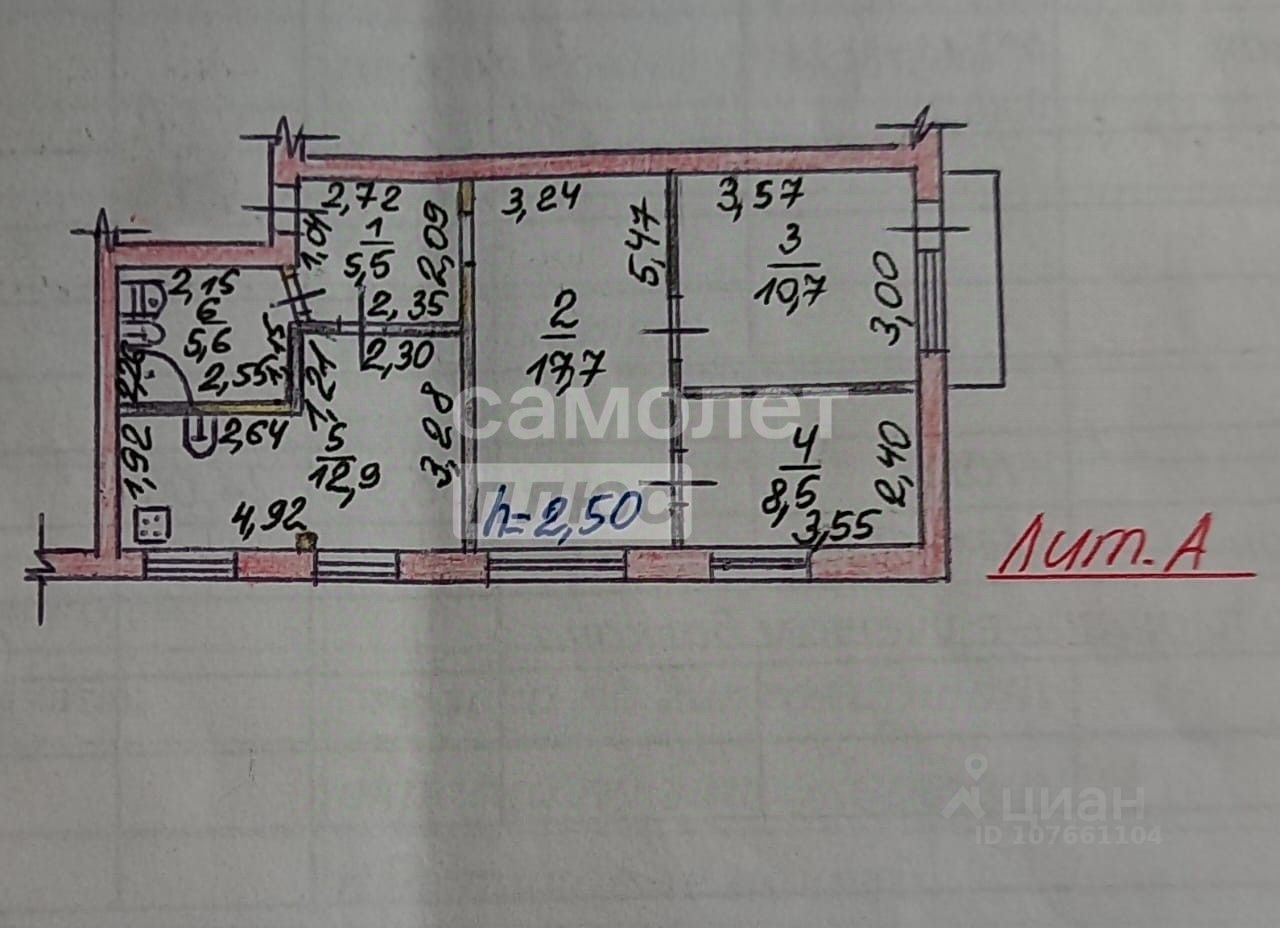 2,72
3,24
3,57
1,01
1
5,5
2,09
5,47
3
10,7
3,00
2,15
6
5,6
2,35
2
17,7
2,30
2,55
1,15
1,21
2,64
5
12,9
3,28
самолет
4
8,5
2,40
1,92
4,92
плюс
h=2,50
3,55
Лит. А
циан
ID 107661104